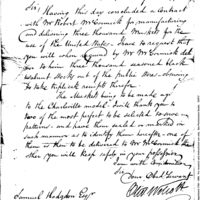 Sir, Having this day concluded a Contract
with Mr Robert McCormick for manufacturing
and delivering three thousand Muskets for the
use of the United States. I have to request that
you will when required by Mr McCormick deli-
ver to him three thousand seasoned black
walnut Stocks out of the public Store observing
to take triplicate receipts therefor.
The Muskets being to be made agreeably
to the Charleville model. I will thank you to
two of the most perfect to be selected to serve as
patterns and have them sealed or marked in
such manner as to identify them hereafter one of
them is then to be delivered to Mr McCormick the
other you will keep safely in your possession.
I am with
Sir
Your Obed Servant
Samuel Hodgdon Esqr